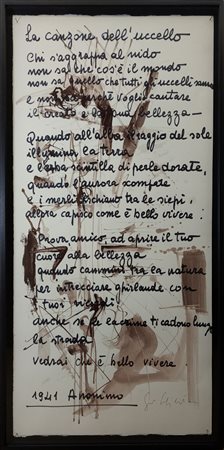 La canzone dell'uccello
Chi s'aggrappa al nido
non sa che cos'è il mondo
non sa quello che tutti gli uccelli sanno
e non sa perché voglia cantare
il creato e la sua bellezza—
Quando all'alba il raggio del sole
illumina la terra
e l'erba scintilla di perle dorate,
quando l'aurora scompare
e i merli fischiano tra le siepi,
allora capisco come è bello vivere!
Prova, amico, ad aprire il tuo
cuore alla bellezza
quando cammini tra la natura
per intrecciare ghirlande con
i tuoi ricordi:
anche se le lacrime ti cadono lungo
la strada
vedrai che è bello vivere.
1941 Anonimo